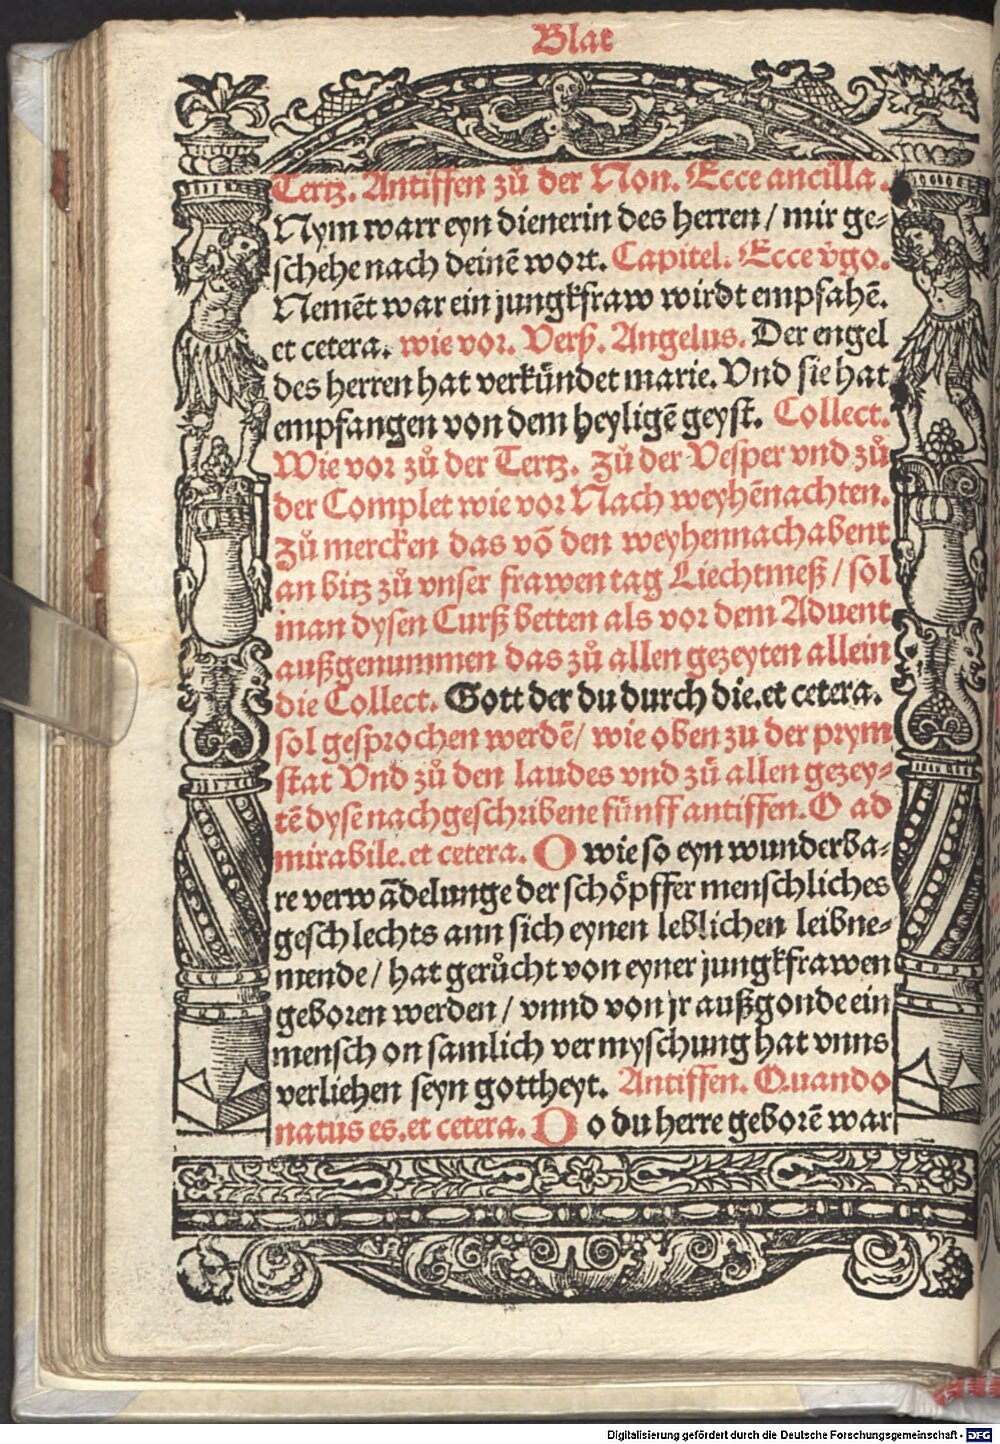 Blat
Tertz. Antiffen zů der Non. Ecce ancilla.
Nym warr eyn dienerin des herren / mir ge-
schehe nach deinē wort. Capitel. Ecce v̊go.
Nemēt war ein jungkfraw wirdt empfahē.
et cetera. wie vor. Verß. Angelus. Der engel
des herren hat verkündet marie. Vnd sie hat
empfangen von dem heyligē geyst. Collect.
Wie vor zů der Tertz. Zů der Vesper vnd zů
der Complet wie vor Nach weyhēnachten.
Zů mercken das vō den weyhennachabent
an bitz zů vnser frawen tag Liechtmeß / sol
man dysen Curß betten als vor dem Aduent
außgenummen das zů allen gezeyten allein
die Collect. Gott der du durch die. et cetera.
sol gesprochen werdē / wie oben zu der prym
stat Vnd zů den laudes vnd zů allen gezey-
tē dyse nachgeschribene fünff antiffen. O ad
mirabile. et cetera. O wie so eyn wunderba-
re verwādelunge der schöpffer menschliches
geschlechts ann sich eynen leblichen leib ne-
mende / hat gerůcht von eyner jungkfrawen
geboren werden / vnnd von jr außgonde ein
mensch on samlich vermyschung hat vnns
verliehen seyn gottheyt. Antiffen. Quando
natus es. et cetera. O o du herre geborē war
Digitalisierung gefördert durch die Deutsche Forschungsgemeinschaft - DFG